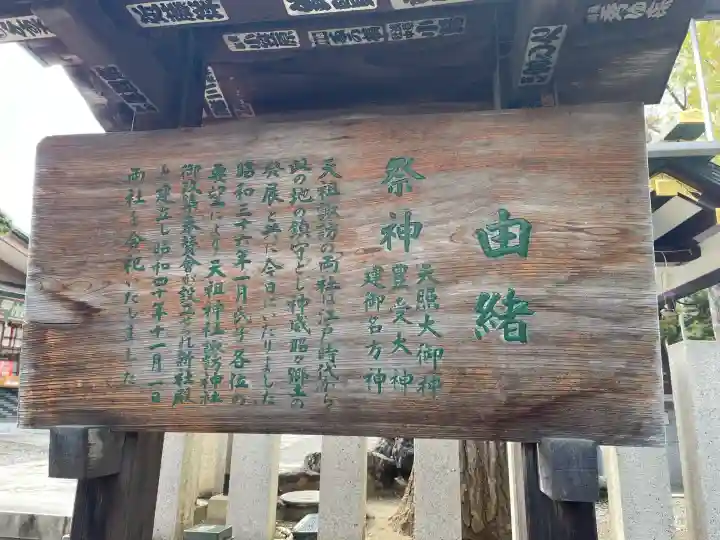 由緒
祭神
天照大御神
豊受大神
建御名方神
天祖諏訪の両社は江戸時代から
此の地の鎮守とし神威昭々鄕土の
発展と共に今日にいたりました
昭和三十六年一月氏子各位の
要望により天祖神社諏訪神社
御改築奉賛会が設立され新社殿
を建立し昭和四十年十一月一日
両社を合祀いたしました